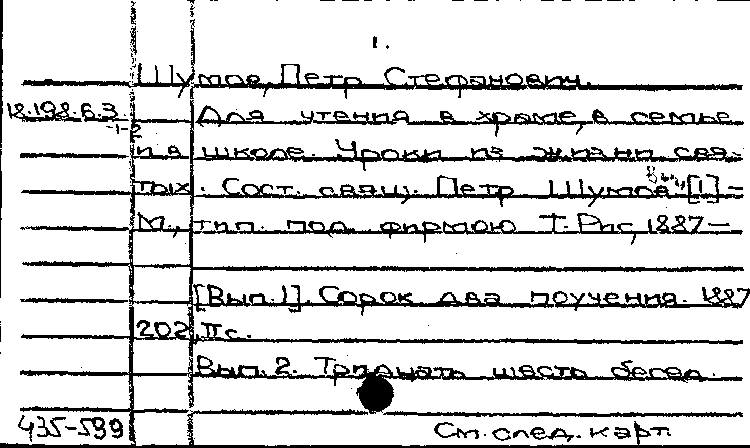 1.
Шумов, Петр Стефанович.
18.198.6.3 Для чтения в храме, в семье
1-2
и в школе. Уроки из жизни свя-
тых. Сост. свящ. Петр Шумов. Вып. [1]-
М., тип. под фирмою Т. Рис, 1887—
[Вып. 1]. Сорок два поучения. 1887
202, II с.
Вып. 2. Тридцать шесть бесед.
435-599 См. след. карт.